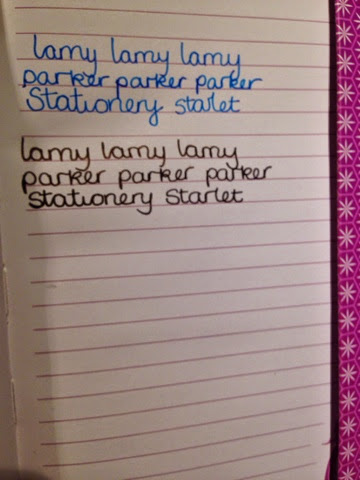 lamy lamy lamy
parker parker parker
Stationery starlet
lamy lamy lamy
parker parker parker
stationery Starlet